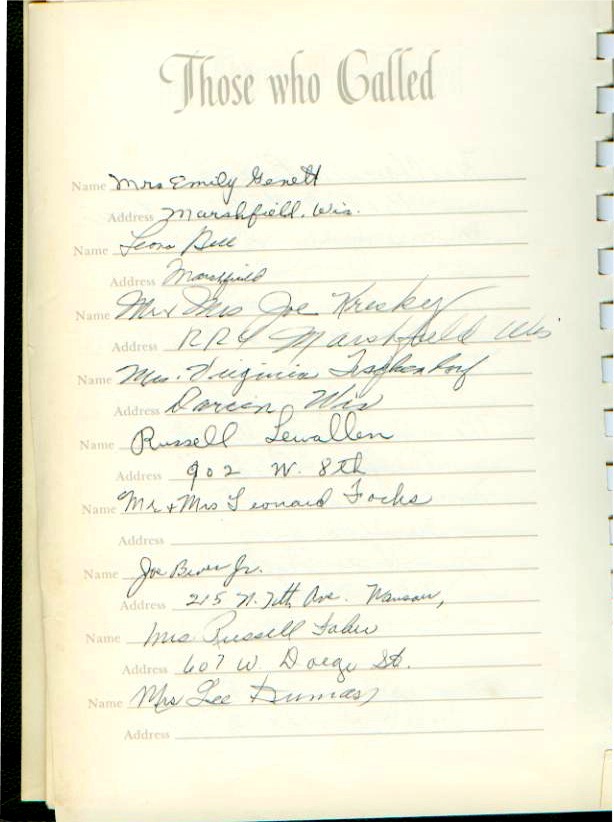 Those who Called
Name Mrs Emily Genett
Address Marshfield, Wis.
Name Leona Bell
Address Marshfield
Name Mr & Mrs Joe Kresky
Address RR4 Marshfield Wis
Name Mrs. Virginia
Address Darien Wis
Name Russell Lewallen
Address 902 W. 8th
Name Mr. & Mrs Leonard Focks
Address
Name Joe Jr.
Address 215 N. 7th Ave. Wausau,
Name Mrs. Russell
Address 607 W. Doege St.
Name Mrs Lee Dumas
Address